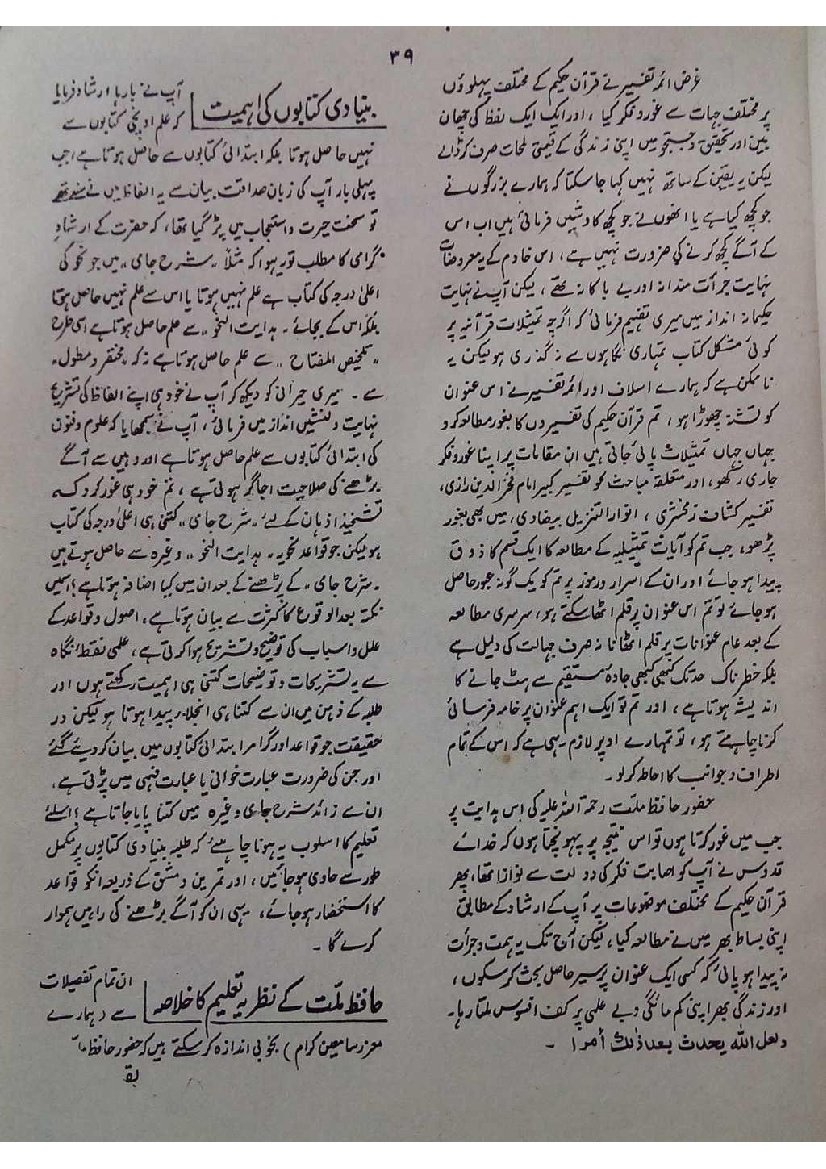 ٣٩
غرض ائمہ تفسیر نے قرآن حکیم کے مختلف پہلوؤں
پر مختلف جہات سے غور و فکر کیا، اور ایک ایک لفظ کی چھان
بین اور تحقیق و جستجو میں اپنی زندگی کے قیمتی لمحات صرف کر ڈالے
لیکن یہ یقین کے ساتھ نہیں کہا جا سکتا کہ ہمارے بزرگوں نے
جو کچھ کیا ہے یا انھوں نے جو کچھ کاوشیں فرمائی ہیں اب اس
کے آگے کچھ کرنے کی ضرورت نہیں ہے، اس خادم کے یہ معروضات
نہایت جرأت مندانہ اور بے باکانہ تھے، لیکن آپ نے نہایت
حکیمانہ انداز میں میری تفہیم فرمائی کہ اگرچہ تمثیلات قرآنیہ پر
کوئی مشکل کتاب تمہاری نگاہوں سے نہ گذری ہو لیکن یہ
ناممکن ہے کہ ہمارے اسلاف اور ائمہ تفسیر نے اس عنوان
کو تشنہ چھوڑا ہو، تم قرآن حکیم کی تفسیروں کا بغور مطالعہ کرو
جہاں جہاں تمثیلات پائی جاتی ہیں ان مقامات پر اپنا غور و فکر
جاری رکھو، اور متعلقہ مباحث کو تفسیر کبیر امام فخر الدین رازی،
تفسیر کشاف زمخشری، انوار التنزیل بیضاوی، میں بھی بغور
پڑھو، جب تم کو آیات تمثیلیہ کے مطالعہ کا ایک قسم کا ذوق
پیدا ہو جائے اور ان کے اسرار و رموز پر تم کو یک گونہ عبور حاصل
ہو جائے تو تم اس عنوان پر قلم اٹھا سکتے ہو، سرسری مطالعہ
کے بعد عام عنوانات پر قلم اٹھانا نہ صرف جہالت کی دلیل ہے
بلکہ خطرناک حد تک کبھی کبھی جادۂ مستقیم سے ہٹ جانے کا
اندیشہ ہوتا ہے، اور تم تو ایک اہم عنوان پر خامہ فرسائی
کرنا چاہتے ہو، تو تمہارے اوپر لازم یہی ہے کہ اس کے تمام
اطراف و جوانب کا احاطہ کر لو۔
حضور حافظ ملت رحمۃ اللہ علیہ کی اس ہدایت پر
جب میں غور کرتا ہوں تو اس نتیجہ پر پہونچتا ہوں کہ خدائے
قدوس نے آپ کو اصابت فکر کی دولت سے نوازا تھا، پھر
قرآن حکیم کے مختلف موضوعات پر آپ کے ارشاد کے مطابق
اپنی بساط بھر میں نے مطالعہ کیا، لیکن آج تک یہ ہمت و جرأت
نہ پیدا ہو پائی کہ کسی ایک عنوان پر سیر حاصل بحث کر سکوں،
اور زندگی بھر اپنی کم مائگی و بے علمی پر کف افسوس ملتا رہا۔
ولعل الله يحدث بعد ذلك أمرا ۔
بنیادی کتابوں کی اہمیت
آپ نے بارہا ارشاد فرمایا
کہ علم اونچی کتابوں سے
نہیں حاصل ہوتا بلکہ ابتدائی کتابوں سے حاصل ہوتا ہے، جب
پہلی بار آپ کی زبان صداقت بیان سے یہ الفاظ میں نے سنے تھے
تو سخت حیرت و استعجاب میں پڑ گیا تھا، کہ حضرت کے ارشاد
گرامی کا مطلب تو یہ ہوا کہ مثلاً "شرح جامی" میں جو نحو کی
اعلیٰ درجہ کی کتاب ہے علم نہیں ہوتا یا اس سے علم نہیں حاصل ہوتا
بلکہ اس کے بجائے "ہدایت النحو" سے علم حاصل ہوتا ہے اسی طرح
"تلخیص المفتاح" سے علم حاصل ہوتا ہے نہ کہ "مختصر و مطول"
سے۔ میری حیرانی کو دیکھ کر آپ نے خود ہی اپنے الفاظ کی تشریح
نہایت دلنشیں انداز میں فرمائی، آپ نے سمجھایا کہ علوم و فنون
کی ابتدائی کتابوں سے علم حاصل ہوتا ہے اور وہیں سے آگے
بڑھنے کی صلاحیت اجاگر ہوتی ہے، تم خود ہی غور کرو کہ
تشحیذ اذہان کے لیے "شرح جامی" کتنی ہی اعلیٰ درجہ کی کتاب
ہو لیکن جو قواعد نحویہ "ہدایت النحو" وغیرہ سے حاصل ہوتے ہیں
"شرح جامی" کے پڑھنے کے بعد ان میں کیا اضافہ ہوتا ہے؟ اسمیں
نکتہ بعد الوقوع کا کثرت سے بیان ہوتا ہے، اصول و قواعد کے
علل و اسباب کی توضیح و تشریح ہوا کرتی ہے، علمی نقطۂ نگاہ
سے یہ تشریحات و توضیحات کتنی ہی اہمیت رکھتے ہوں اور
طلبہ کے ذہن میں ان سے کتنا ہی انجلاء پیدا ہوتا ہو لیکن در
حقیقت جو قواعد اور گرامر ابتدائی کتابوں میں بیان کر دیئے گئے
اور جن کی ضرورت عبارت خوانی یا عبارت فہمی میں پڑتی ہے،
ان سے زائد شرح جامی وغیرہ میں کتنا پایا جاتا ہے؟ اسلئے
تعلیم کا اسلوب یہ ہونا چاہئے کہ طلبہ بنیادی کتابوں پر مکمل
طور سے حاوی ہو جائیں، اور تمرین و مشق کے ذریعہ انکو قواعد
کا استحضار ہو جائے، یہی ان کو آگے بڑھنے کی راہیں ہموار
کرے گا۔
حافظ ملت کے نظریہ تعلیم کا خلاصہ
ان تمام تفصیلات
سے (ہمارے
معزز سامعین کرام) بخوبی اندازہ کر سکتے ہیں کہ حضور حافظ